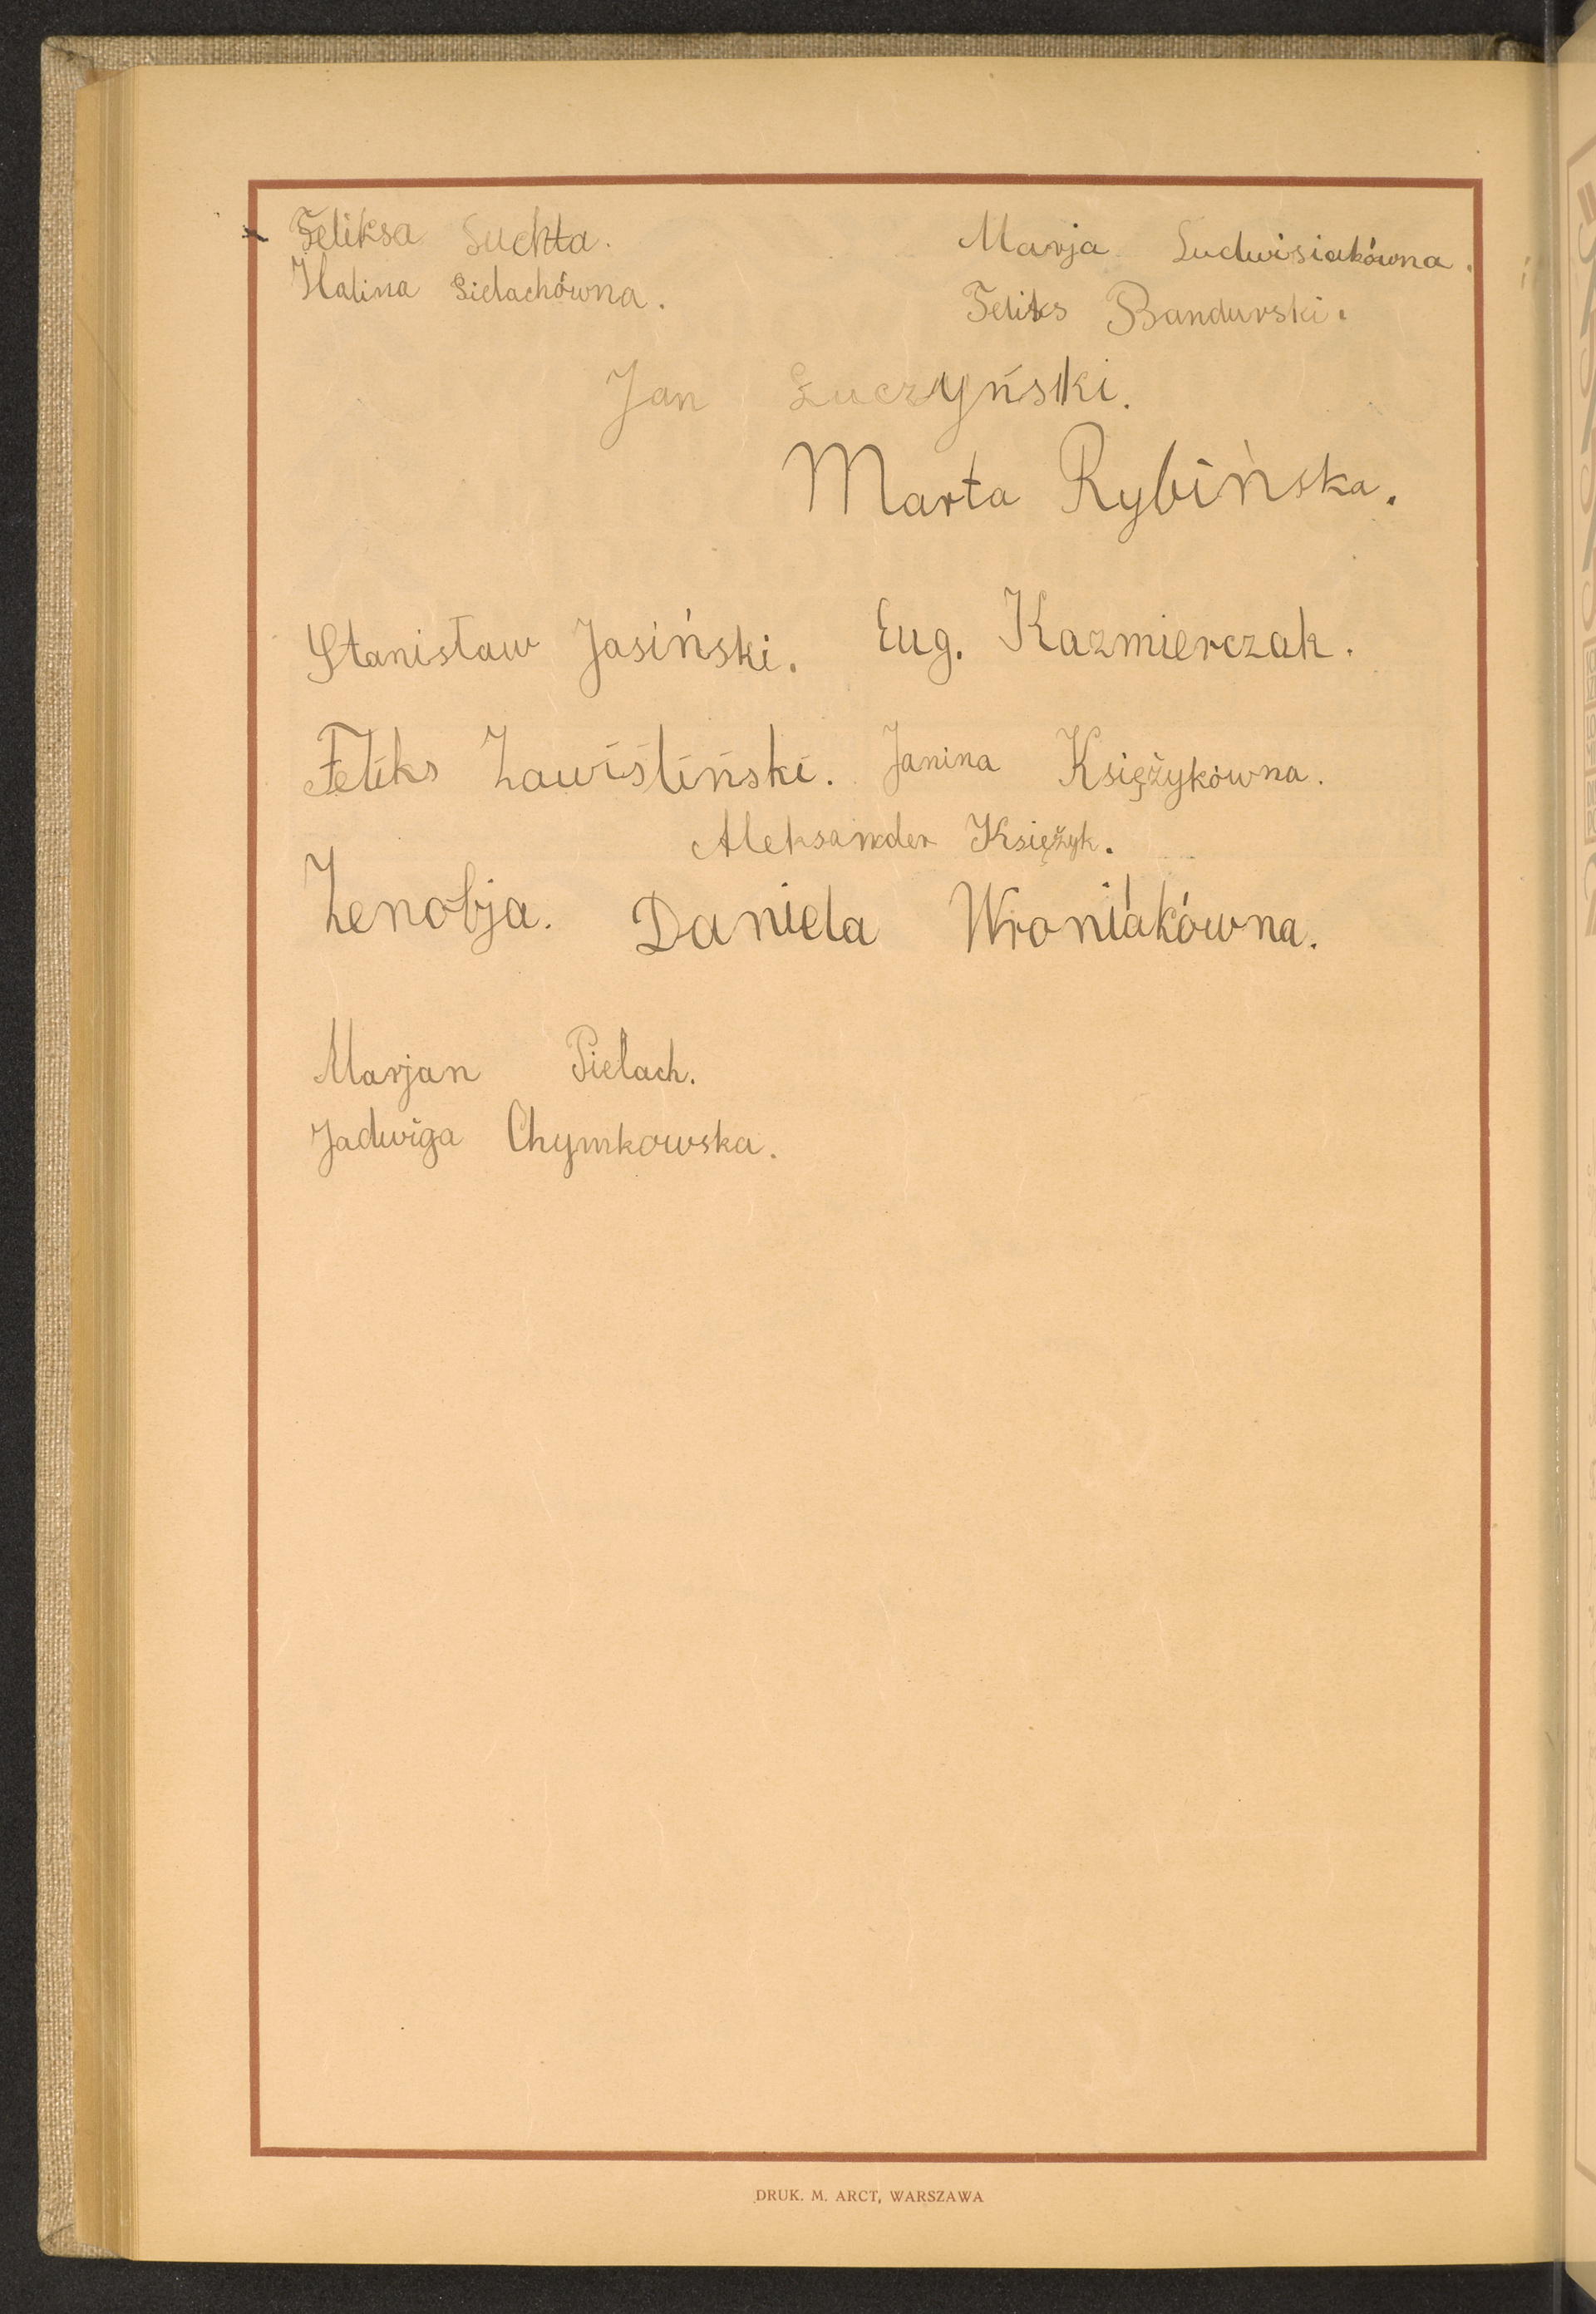 Feliksa Suchta. Marja Ludwisiakówna.
Halina Sielachówna. Feliks Bandurski.
Jan Łuczyński.
Marta Rybińska.
Stanisław Jasiński. Eug. Kazmierczak.
Feliks Zawiśliński. Janina Księżykówna.
Aleksander Księżyk.
Zenobja. Daniela Wroniakówna.
Marjan Pielach.
Jadwiga Chymkowska.
DRUK. M. ARCT, WARSZAWA